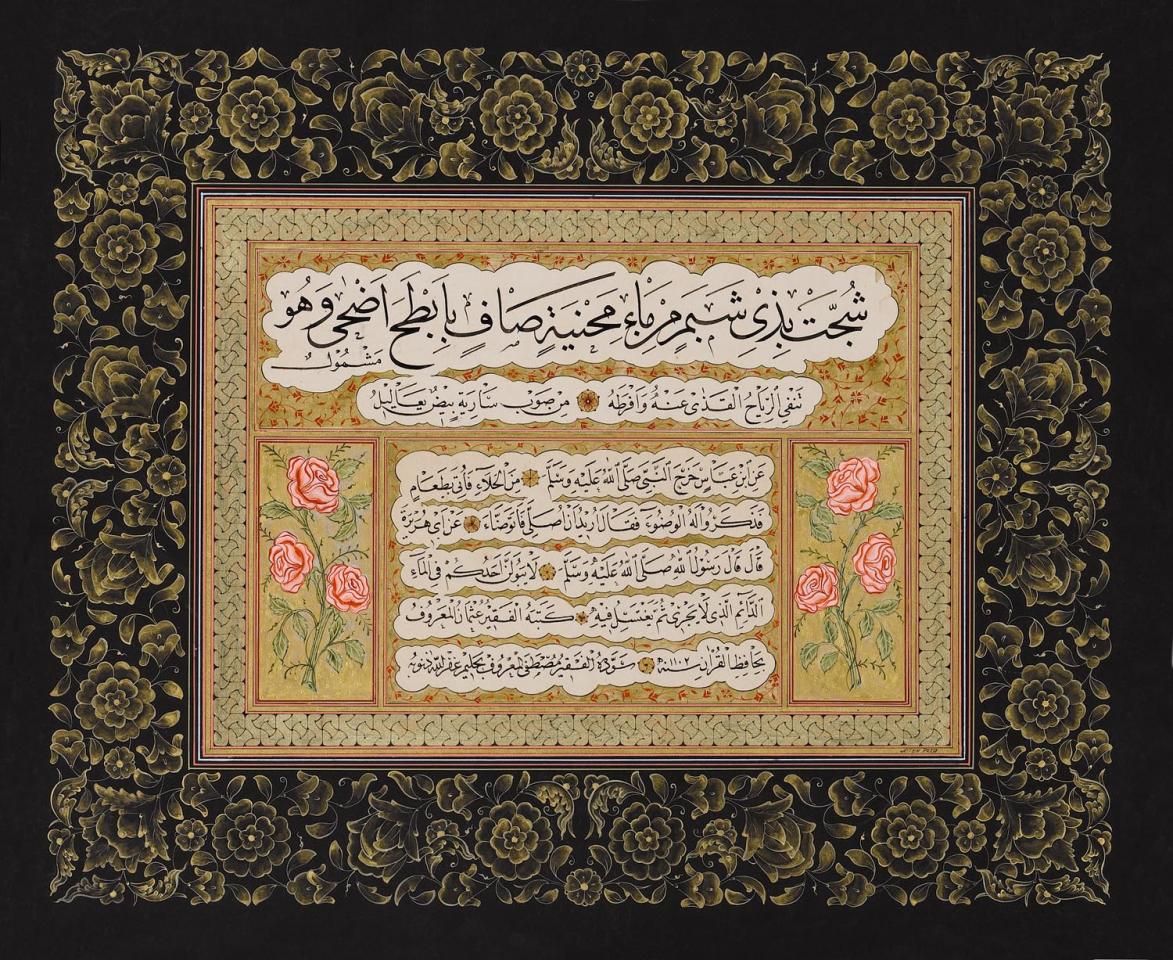 شُجَّتْ بِذِي شَبَمٍ مِنْ مَاءِ مَحْنِيَةٍ صَافٍ بِأَبْطَحَ أَضْحَى وَهُوَ
مَشْمُولُ
تَنْفِي الرِّيَاحُ الْقَذَى عَنْهُ وَأَفْرَطَهُ مِنْ صَوْبِ سَارِيَةٍ بِيضٌ يَعَالِيلُ
عن ابن عباس خرج النبي صلى الله عليه وسلم من الخلاء فأتي بطعام
فذكروا له الوضوء فقال أريد أن أصلي فأتوضأ عن أبي هريرة
قال قال رسول الله صلى الله عليه وسلم لا يبولن أحدكم في الماء
الدائم الذي لا يجري ثم يغتسل فيه كتبه الفقير عثمان المعروف
بحافظ القرآن سنة ١١٠٢ سوده الفقير مصطفى المعروف بحليم غفر الله ذنوبه